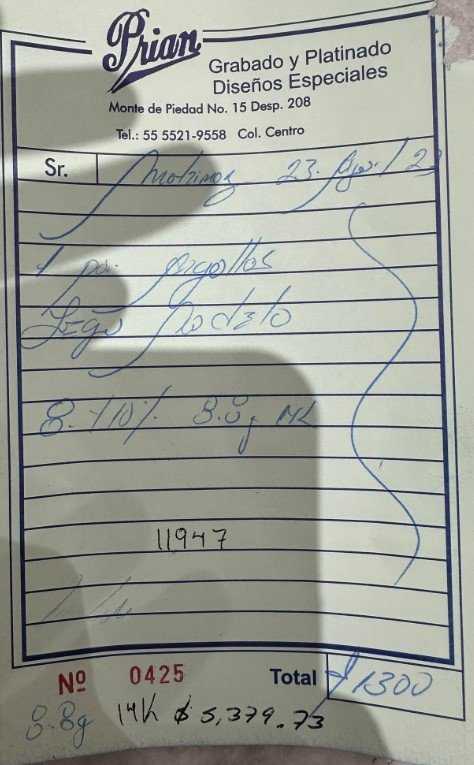 Prian
Grabado y Platinado
Diseños Especiales
Monte de Piedad No. 15 Desp. 208
Tel.: 55 5521-9558 Col. Centro
Sr. 23
1 par
Modelo
8. +10% 8.8g 14K
11947
Nº 0425 Total $ 1300
8.8g 14K $ 5,379.73